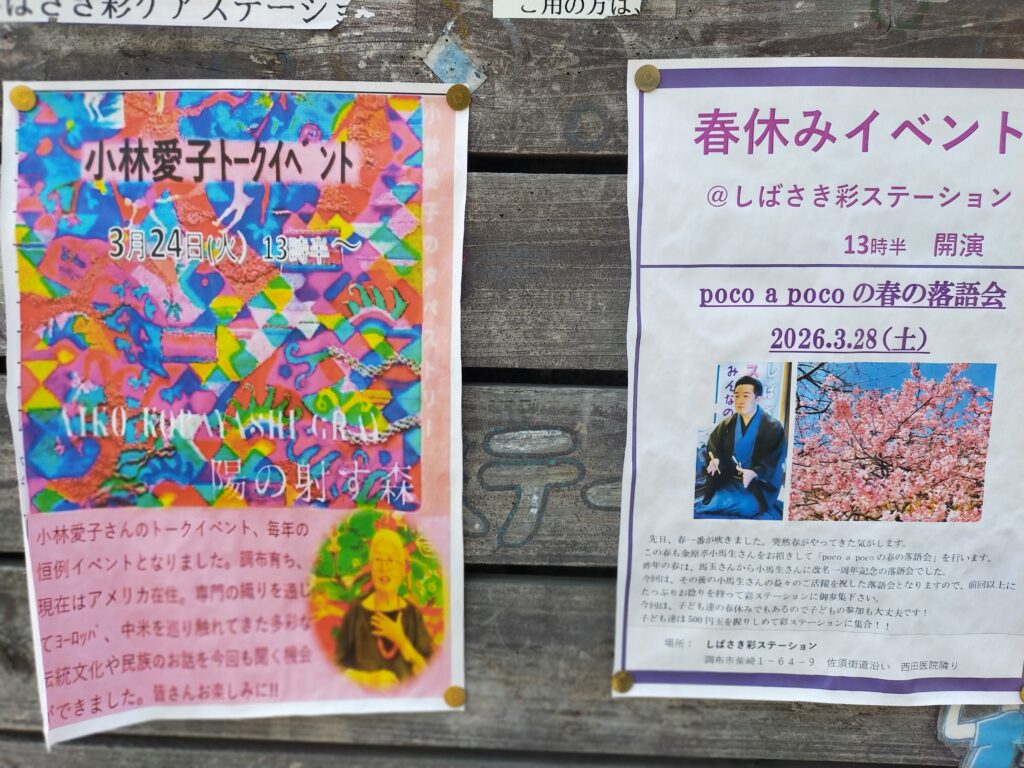 ばさき彩ケアステーション
ご用の方は、
小林愛子トークイベント
3月24日(火) 13時半～
AIKO KOBAYASHI GRAY
陽の射す森
小林愛子さんのトークイベント、毎年の
恒例イベントとなりました。調布育ち、
現在はアメリカ在住。専門の織りを通じ
てヨーロッパ、中米を巡り触れてきた多彩な
伝統文化や民族のお話を今回も聞く機会
ができました。皆さんお楽しみに!!
春休みイベント
@しばさき彩ステーション
13時半 開演
poco a poco の春の落語会
2026.3.28(土)
みんなの
先日、春一番が吹きました。突然春がやってきた気がします。
この春も金原亭小馬生さんをお招きして「poco a pocoの春の落語会」を行います。
昨年の春は、馬玉さんから小馬生さんに改名一周年記念の落語会でした。
今回は、その後の小馬生さんの益々のご活躍を祝した落語会となりますので、前回以上に
たっぷりお捻りを持って彩ステーションに御参集下さい。
今回は、子ども達の春休みでもあるので子どもの参加も大丈夫です！
子ども達は500円玉を握りしめて彩ステーションに集合！！
場所： しばさき彩ステーション
調布市柴崎1-64-9 佐須街道沿い 西田医院隣り
ステー